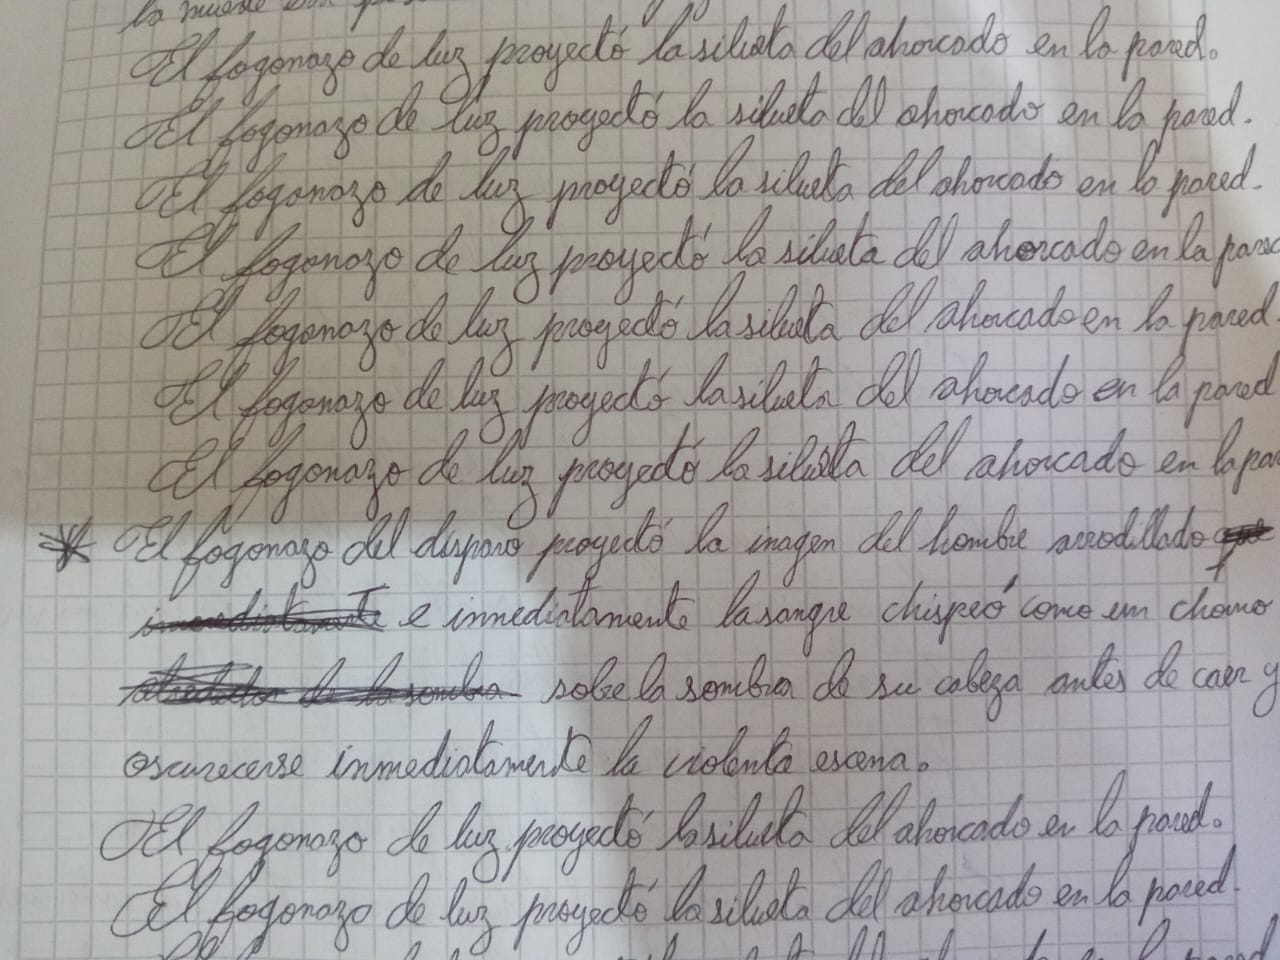 la muerte
El fogonazo de luz proyectó la silueta del ahorcado en la pared.
El fogonazo de luz proyectó la silueta del ahorcado en la pared.
El fogonazo de luz proyectó la silueta del ahorcado en la pared.
El fogonazo de luz proyectó la silueta del ahorcado en la pared
El fogonazo de luz proyectó la silueta del ahorcado en la pared.
El fogonazo de luz proyectó la silueta del ahorcado en la pared
El fogonazo de luz proyectó la silueta del ahorcado en la par
* El fogonazo del disparo proyectó la imagen del hombre arrodillado
inmediatamente e inmediatamente la sangre chispeó como un chorro
alrededor de la sombra sobre la sombra de su cabeza antes de caer y
oscurecerse inmediatamente la violenta escena.
El fogonazo de luz proyectó la silueta del ahorcado en la pared.
El fogonazo de luz proyectó la silueta del ahorcado en la pared.